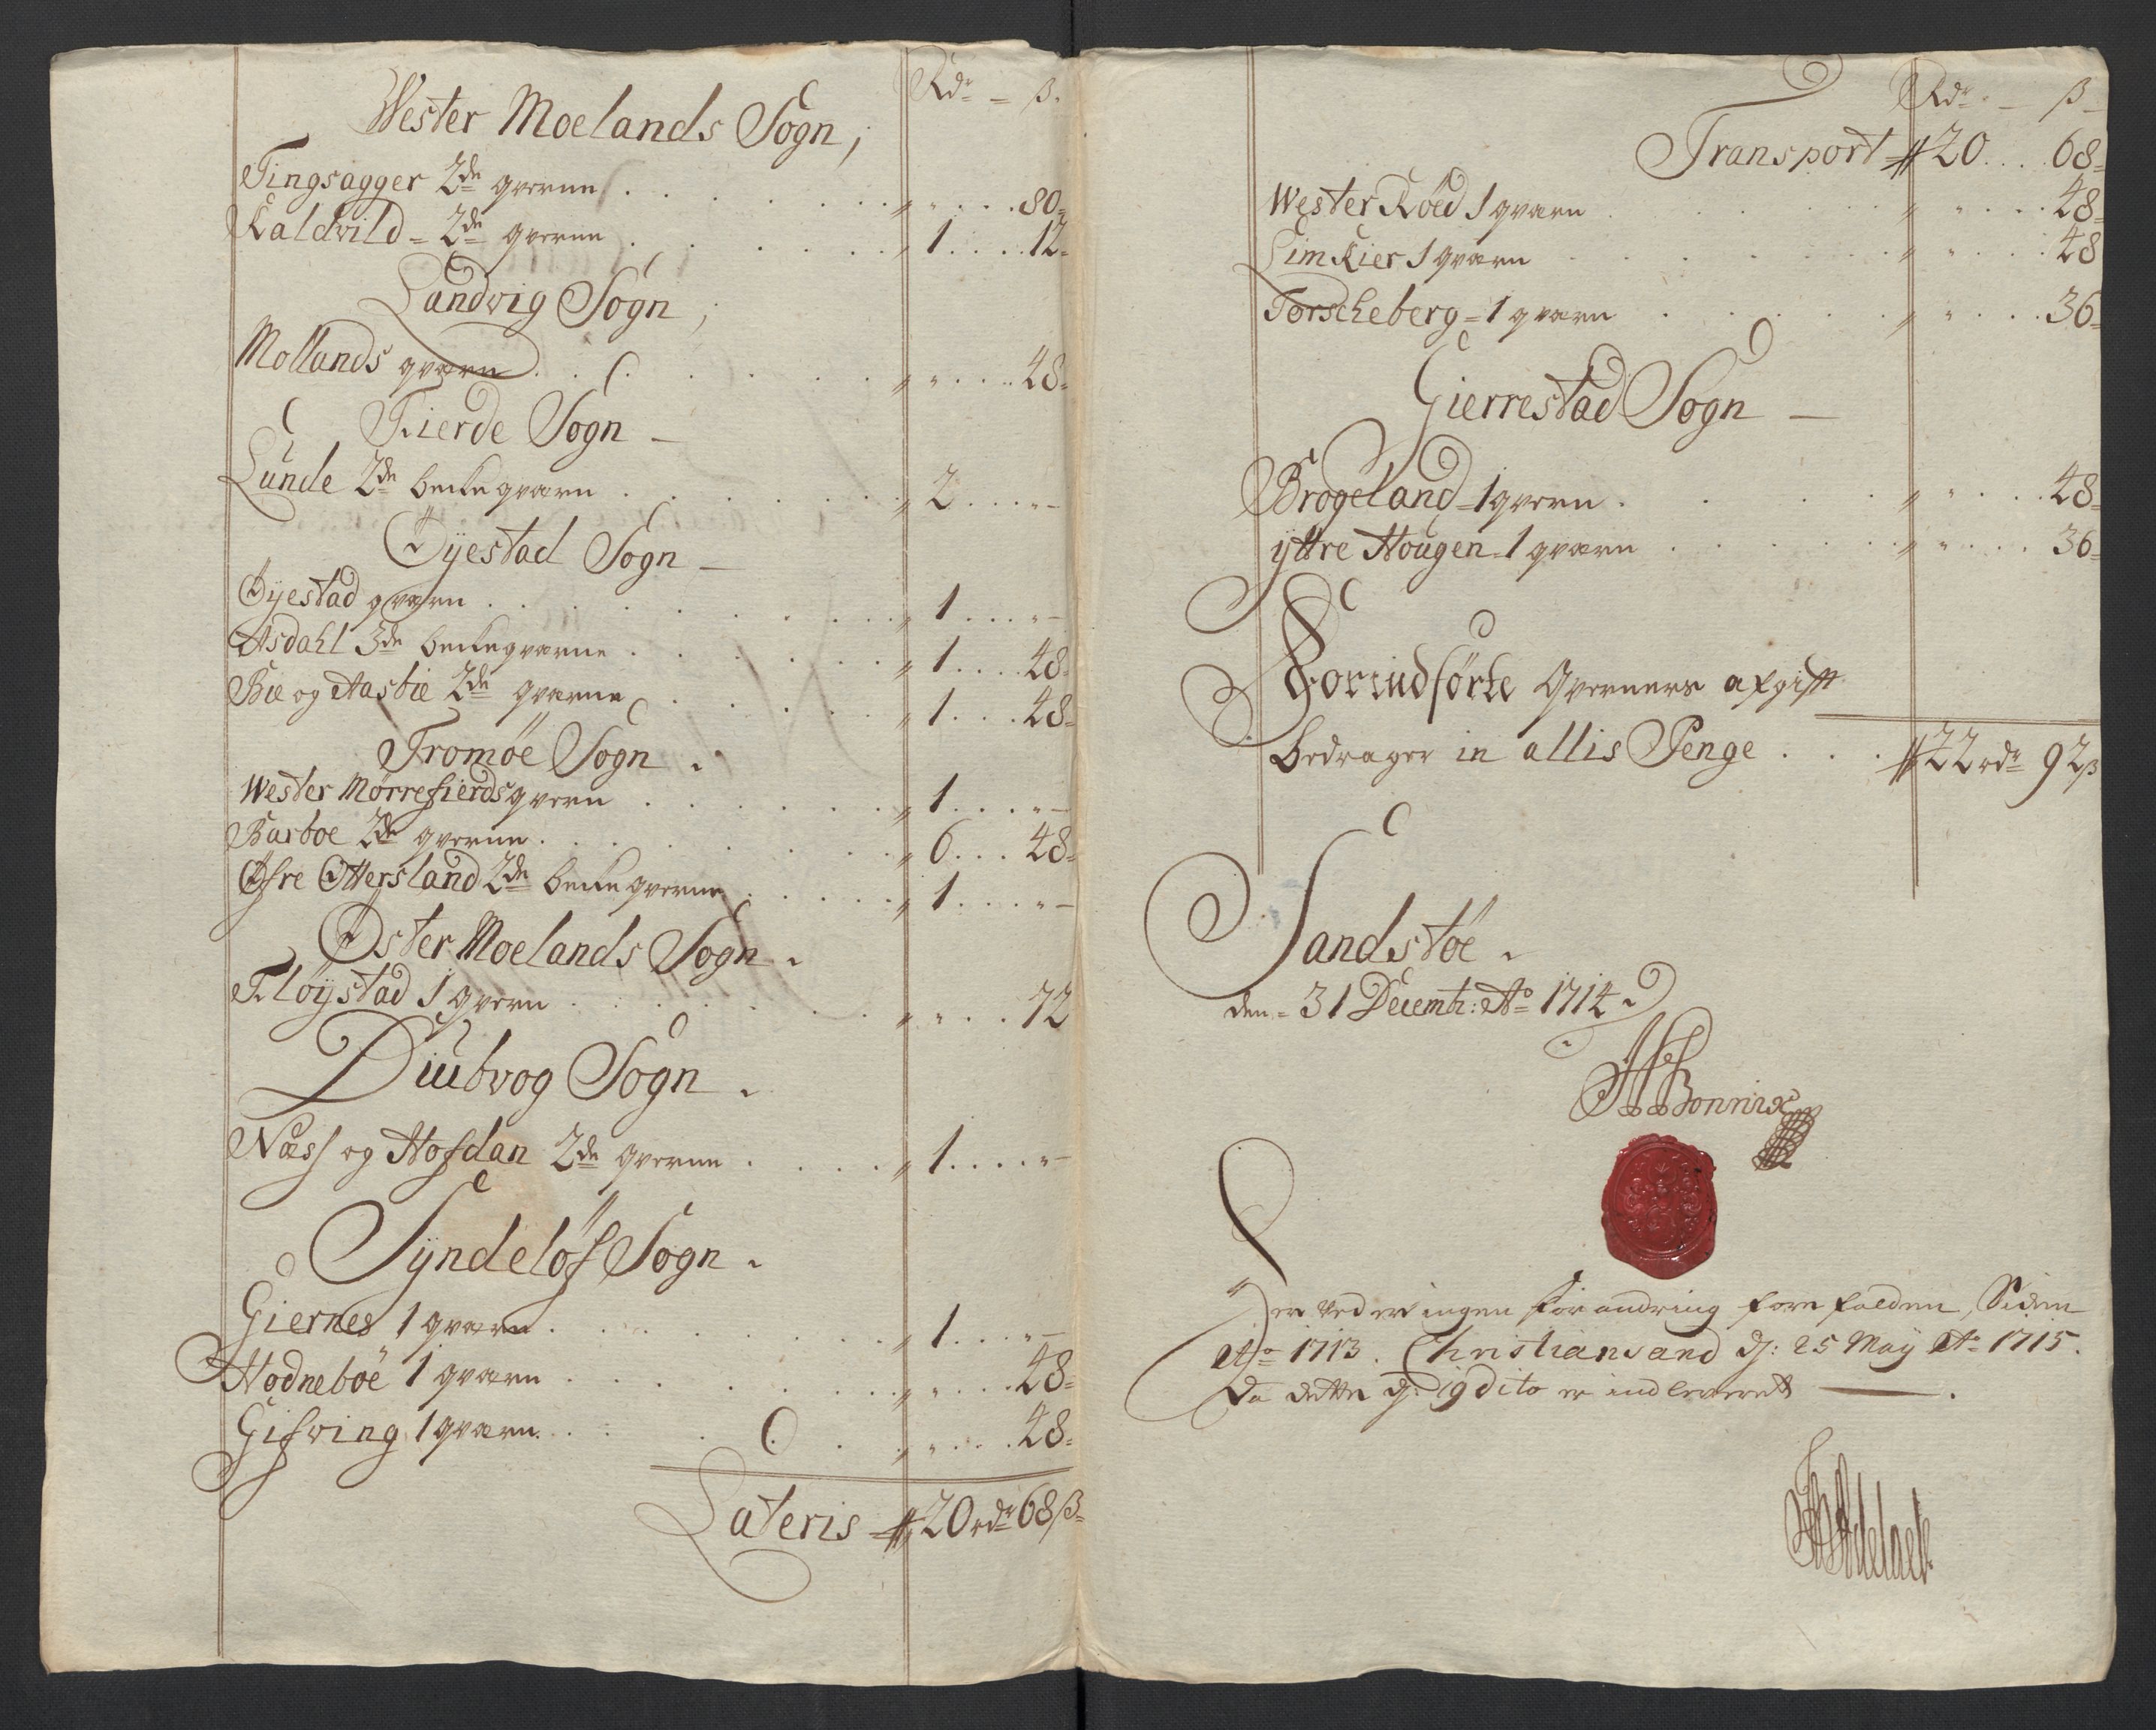 Rdr = β.
Wester Moelands Sogn,
Tingsagger 2de qverne . . . . . . . 80=
Kaldvild = 2de qverne . . . . . . 1 . . . . 12=
Landvig Sogn,
Mollands qværn . . . . . . . 48=
Fierde Sogn —
Lunde 2de beckeqvarn . . . . . . 2 . . . „ —
Øyestad Sogn —
Øyestad qvarn . . . . . . . 1 . . . „ —
Asdahl 3de beckeqvarne . . . . . . 1 . . . . 48=
Bie og Aasbie 2de qvarne . . . . . 1 . . . 48=
Tromöe Sogn .
Wester Mørrefierds qvern . . . . . . 1 . . . „ —
Barboe 2de qverne . . . . . . . 6 . . . 48=
Øfre Ottersland 2de beckeqverne . . . . . 1 . . . . „ —
Øster Moelands Sogn .
Fløÿstad 1 qvern . . . . . . . 72
Diubvog Sogn .
Næss og Hofdan 2de qverne . . . . . 1 . . . . „ —
Sÿndeløf Sogn .
Giernes 1 qvarn . . . . . . . 1 . . . „ —
Hodneböe 1 qvarn . . . . . . . . . 48=
Gifving 1 qvarn . . . . . . . . . 48=
Lateris 20 rdr 68 β=
Rdr = β —
Transport 20 . . . . 68=
Wester Röed 1 qvarn . . . . . . . . . 48=
Limkier 1 qvarn . . . . . . . . . 48
Torscheberg = 1 qvarn . . . . . . . . . 36=
Gierrestad Sogn —
Brogeland = 1 qvern . . . . . . . . 48=
ÿttre Hougen = 1 qvarn . . . . . . . . . 36=
Forindførte qverners afgifft
bedrager in allis Penge . . . 22 rdr 92 β
Sandstöe .
den = 31 Decembr: Ao 1714
HBonnix
Her ved er ingen forandring forefalden, Siden
Ao 1713. Christiansand d: 25 Maÿ Ao 1715.
Da dette d: 19 dito er indleveret — .
Adelaer